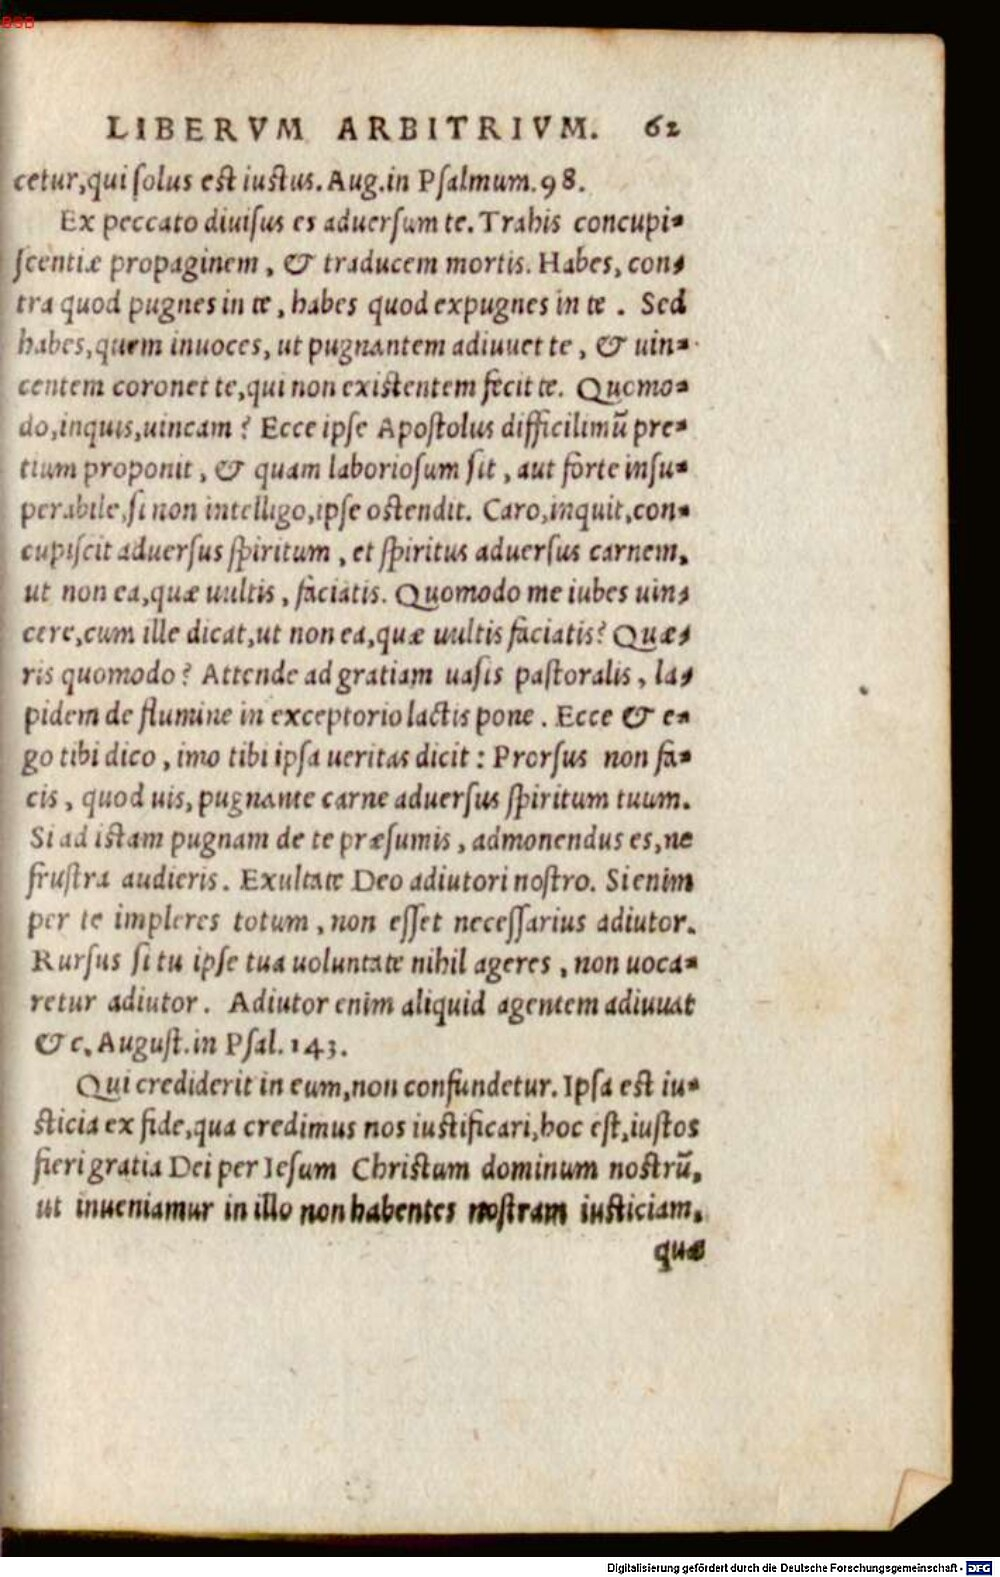 LIBERVM ARBITRIVM. 62
cetur,qui solus est iustus. Aug.in Psalmum.98.
Ex peccato diuisus es aduersum te. Trahis concupi-
scentiæ propaginem, & traducem mortis. Habes, con-
tra quod pugnes in te, habes quod expugnes in te. Sed
habes,quem inuoces, ut pugnantem adiuuet te, & uin-
centem coronet te,qui non existentem fecit te. Quomo-
do,inquis,uincam? Ecce ipse Apostolus difficilimū pre-
tium proponit, & quam laboriosum sit, aut forte insu-
perabile,si non intelligo,ipse ostendit. Caro,inquit,con-
cupiscit aduersus spiritum, et spiritus aduersus carnem,
ut non ea,quæ uultis, faciatis. Quomodo me iubes uin-
cere,cum ille dicat,ut non ea,quæ uultis faciatis? Quæ-
ris quomodo? Attende ad gratiam uasis pastoralis, la-
pidem de flumine in exceptorio lactis pone. Ecce & e-
go tibi dico, imo tibi ipsa ueritas dicit: Prorsus non fa-
cis, quod uis, pugnante carne aduersus spiritum tuum.
Si ad istam pugnam de te præsumis, admonendus es,ne
frustra audieris. Exultate Deo adiutori nostro. Si enim
per te impleres totum, non esset necessarius adiutor.
Rursus si tu ipse tua uoluntate nihil ageres, non uoca-
retur adiutor. Adiutor enim aliquid agentem adiuuat
&c. August.in Psal.143.
Qui crediderit in eum,non confundetur. Ipsa est iu-
sticia ex fide,qua credimus nos iustificari,hoc est,iustos
fieri gratia Dei per Iesum Christum dominum nostrū,
ut inueniamur in illo non habentes nostram iusticiam,
quæ
Digitalisierung gefördert durch die Deutsche Forschungsgemeinschaft - DFG